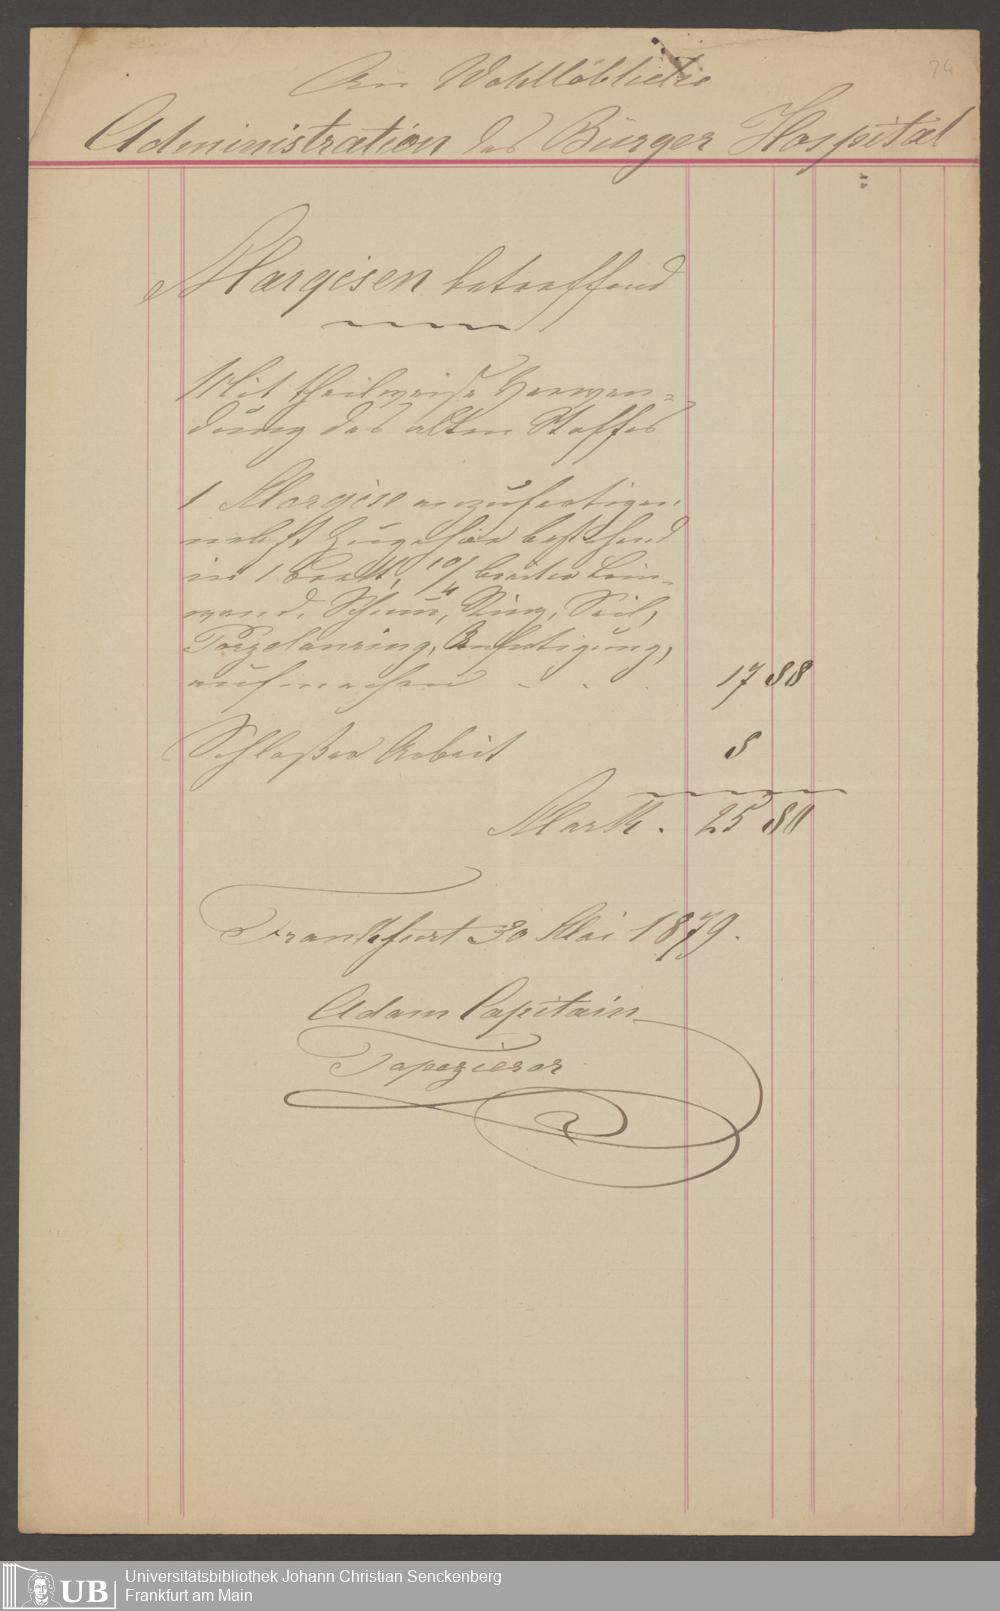 74
An Wohllöbliche
Administration des Bürger Hospital
Marqisen betreffend
Mit theilweiser Verwen=
dung des alten Stoffes
1 Marqise anzufertigen
nebst Zugehör bestehend
in 1 Brett, 10/4 breiter Lein=
wand, Schnur, Ring, Seil,
Porzelanring, Anfertigung,
aufmachen - - . 17 88
Schloßer Arbeit 8
Mark. 25 88
Frankfurt 30 Mai 1879.
Adam Capitain
Tapezierer
UB
Universitätsbibliothek Johann Christian Senckenberg
Frankfurt am Main